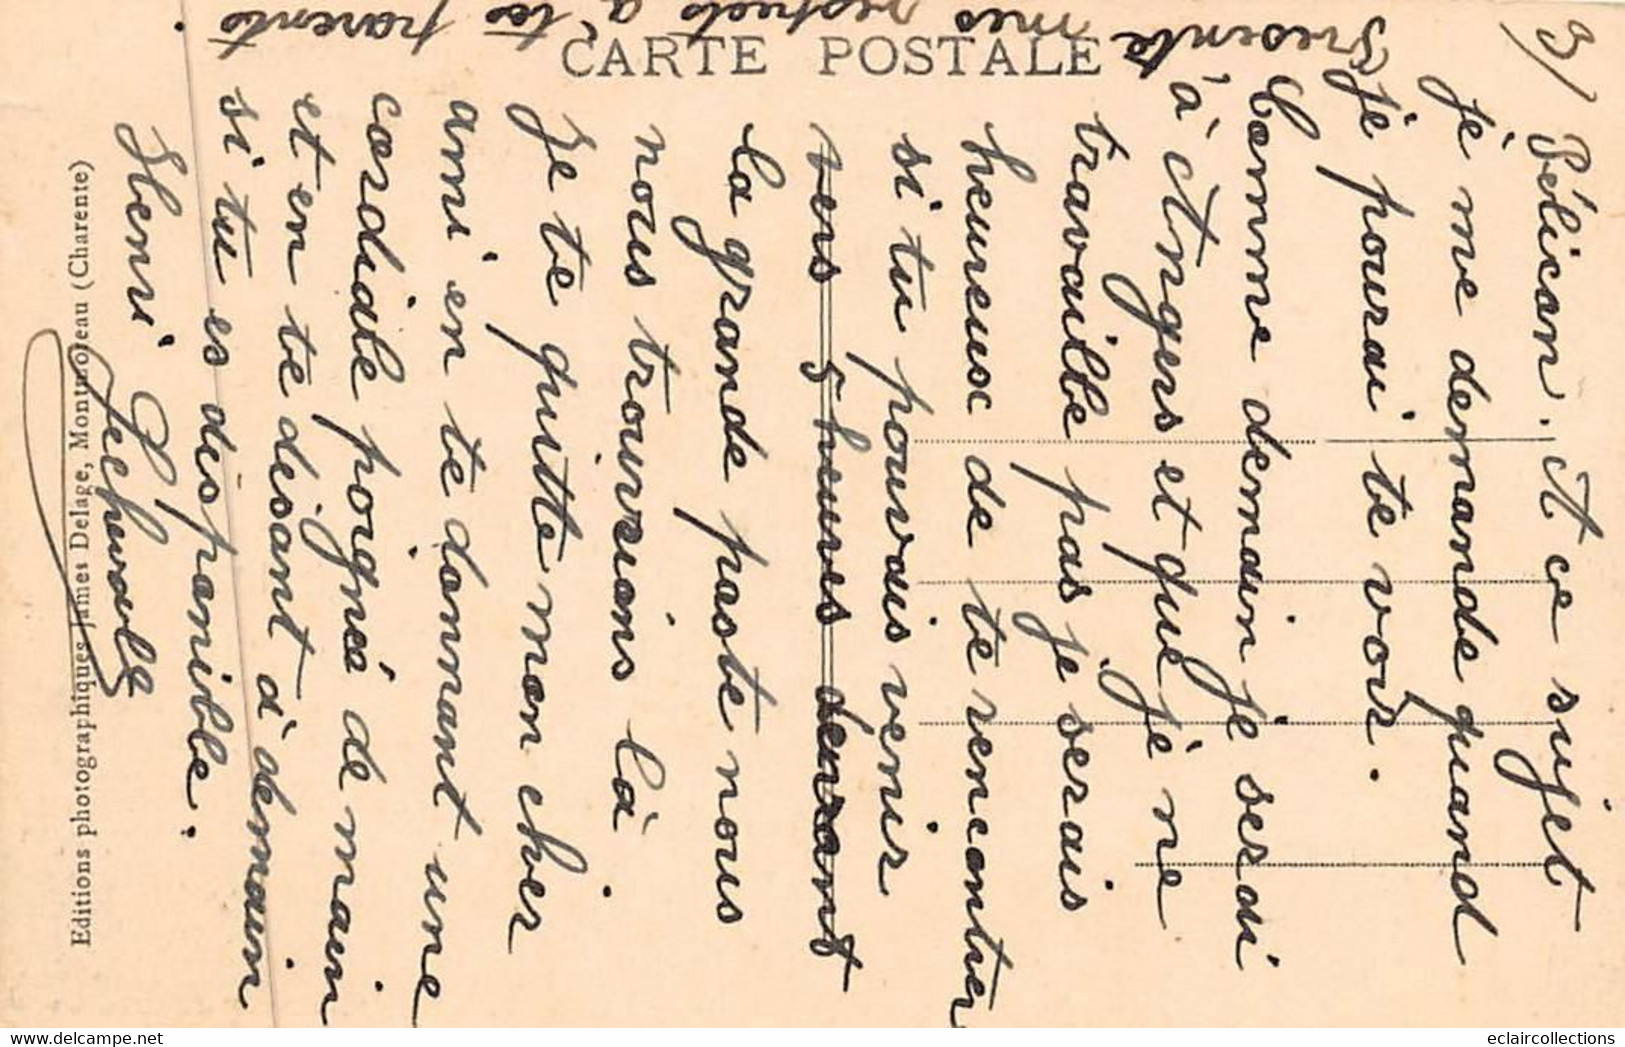 3/
Pélican. A ce sujet
je me demande quand
je pourai te voir.
Comme demain je serai
à Angers et que je ne
travaille pas je serais
heureux de te rencontrer
si tu pouvais venir
vers 5 heures devant
la grande poste nous
nous trouvrions là
Je te quitte mon cher
ami en te donnant une
cordiale poignée de main
et en te disant à demain
si tu es disponible.
Henri
Presente mes respects à tes parents
CARTE POSTALE
Editions photographiques James Delage, Montmoreau (Charente)
eclaircollections